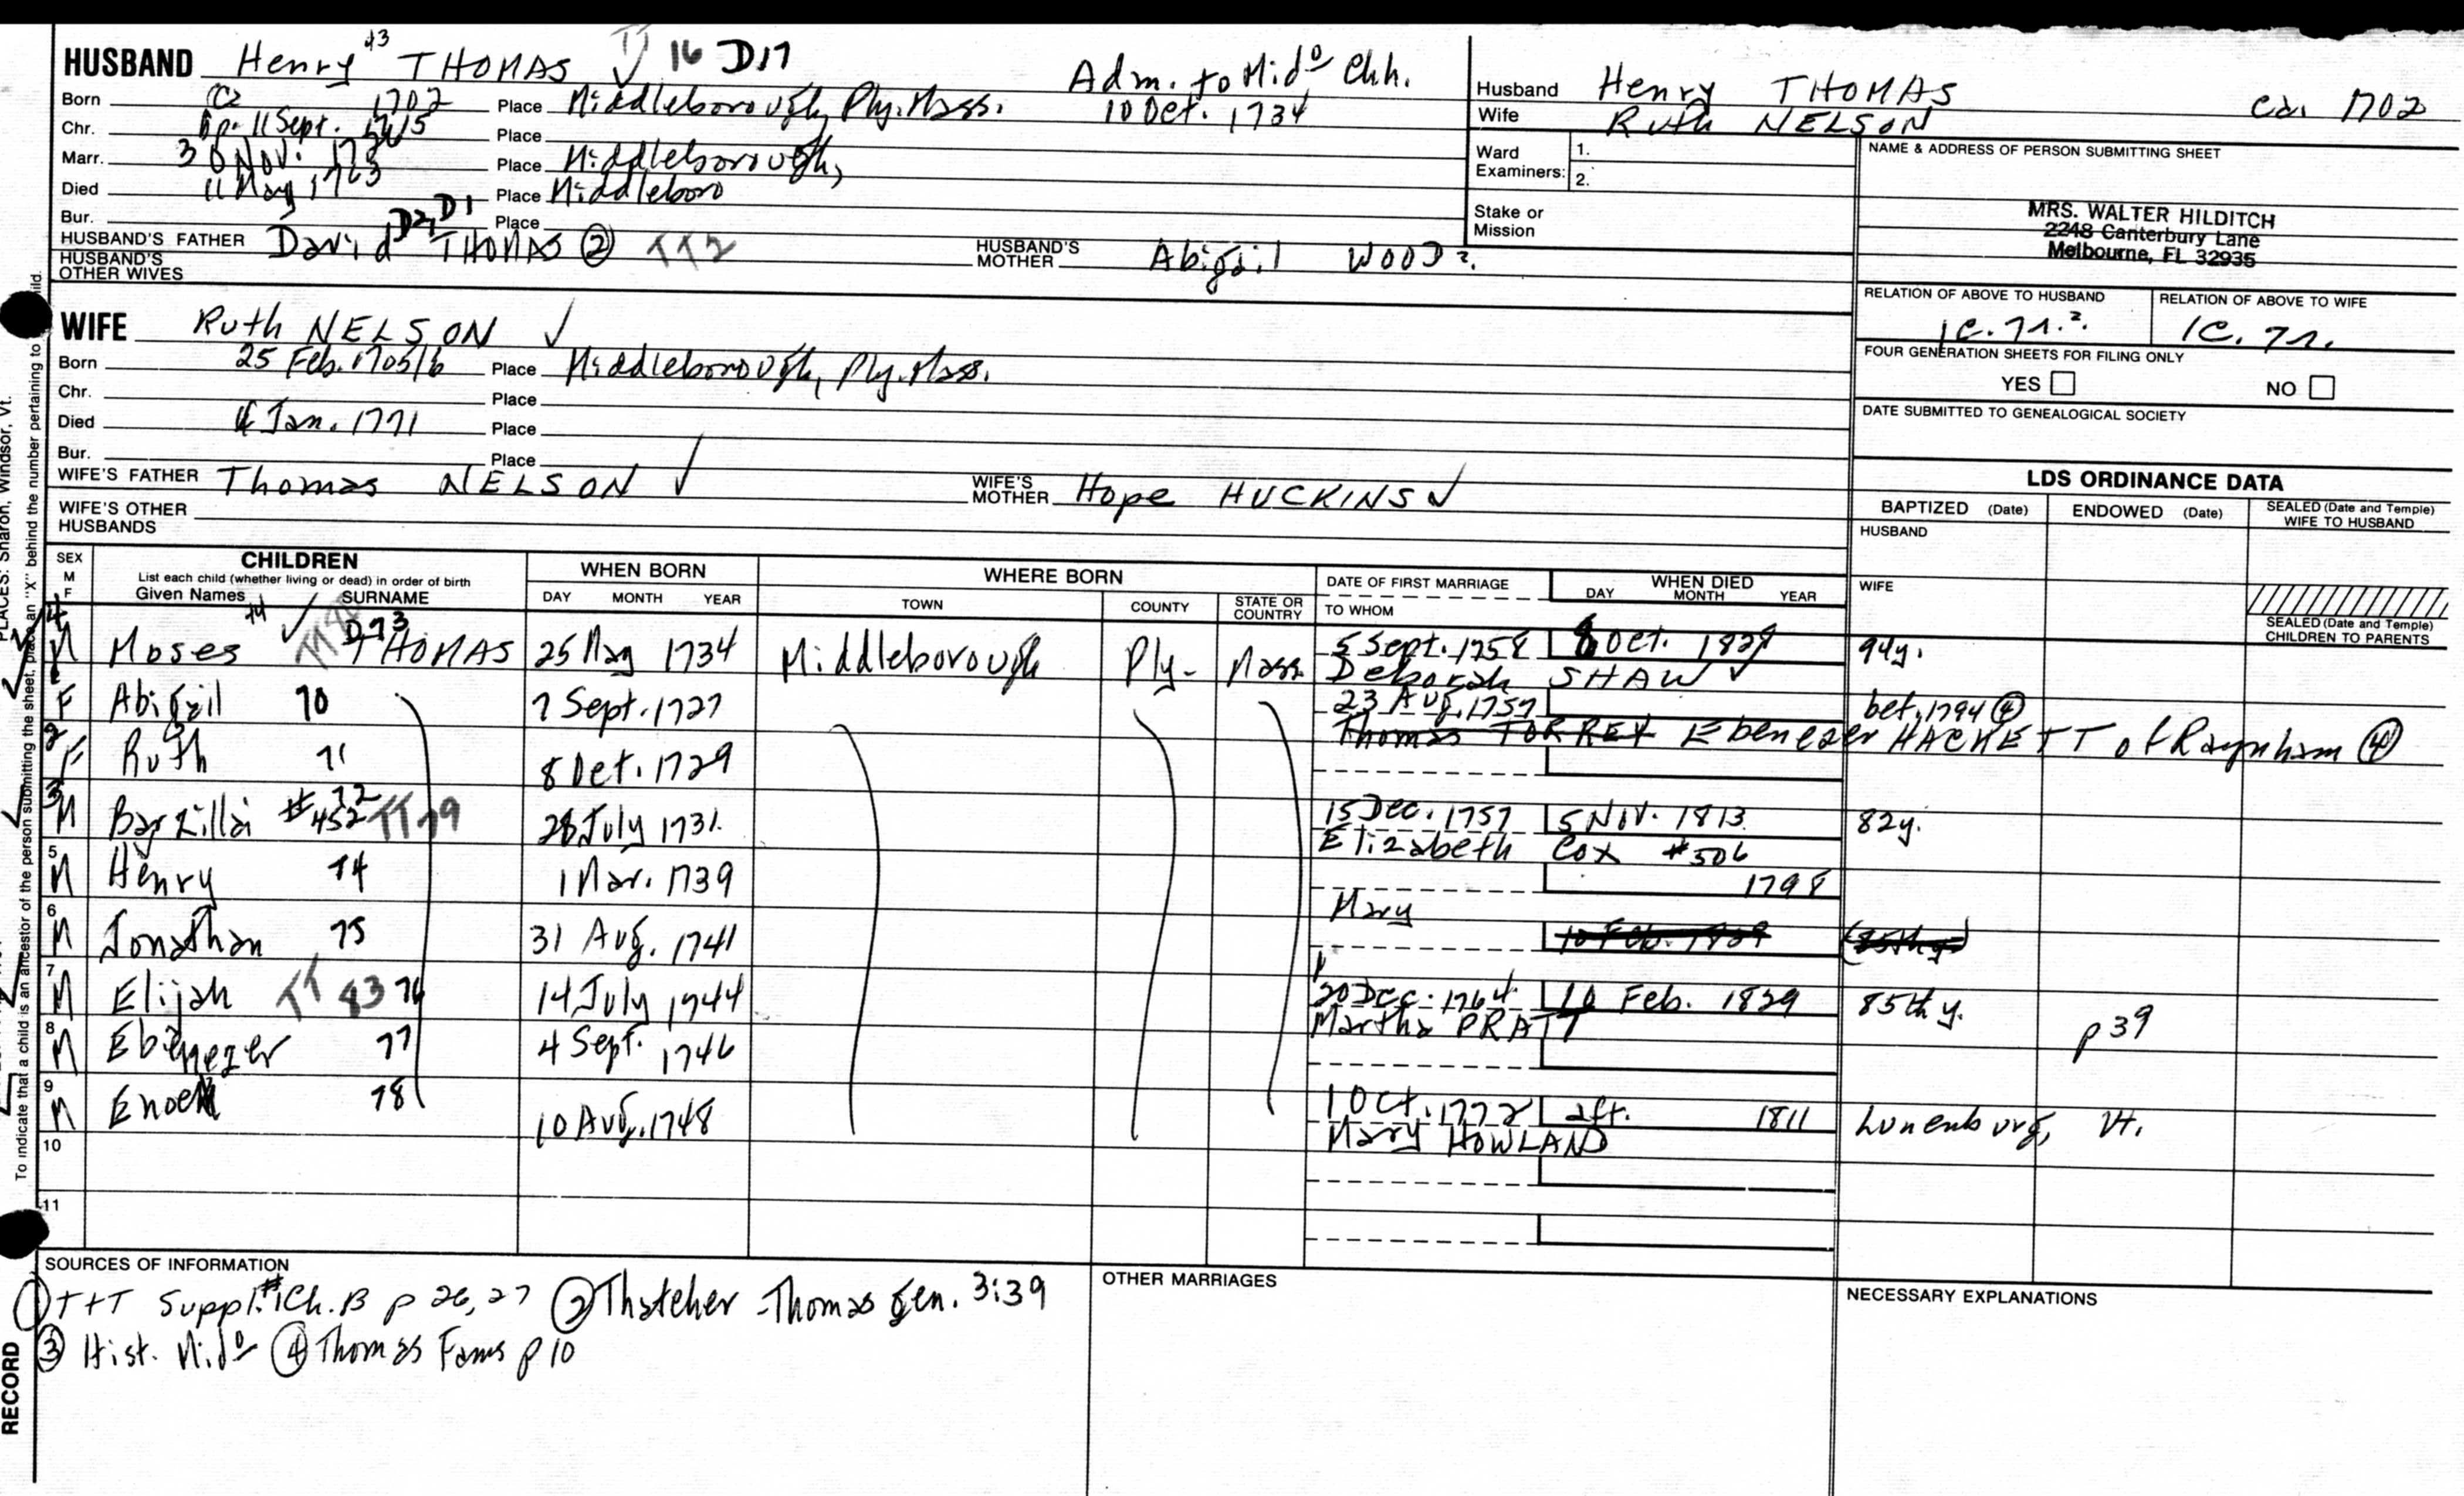 HUSBAND Henry #3 THOMAS 16 D17
Adm. to Mid° Chh.
10 Oct. 1734
Born Ca 1702 Place Middleborough, Ply. Mass.
Chr. 11 Sept. Place
Marr. 30 Nov. Place Middleborough,
Died 11 May 1763 Place Middleboro
Bur. Place
HUSBAND'S FATHER David D2, D1 THOMAS ② TT2 HUSBAND'S MOTHER Abigail WOOD?
HUSBAND'S OTHER WIVES
Husband Henry THOMAS ca. 1702
Wife Ruth NELSON
Ward Examiners: 1.
2.
Stake or Mission
NAME & ADDRESS OF PERSON SUBMITTING SHEET
MRS. WALTER HILDITCH
2248 Canterbury Lane
Melbourne, FL 32935
RELATION OF ABOVE TO HUSBAND RELATION OF ABOVE TO WIFE
FOUR GENERATION SHEETS FOR FILING ONLY
YES NO
DATE SUBMITTED TO GENEALOGICAL SOCIETY
WIFE Ruth NELSON ✓
Born 25 Feb. 1705/6 Place Middleborough, Ply. Mass.
Chr. Place
Died Jan. 1771 Place
Bur. Place
WIFE'S FATHER Thomas NELSON ✓ WIFE'S MOTHER Hope HUCKINS ✓
WIFE'S OTHER HUSBANDS
LDS ORDINANCE DATA
BAPTIZED (Date) ENDOWED (Date) SEALED (Date and Temple) WIFE TO HUSBAND
HUSBAND
WIFE
SEALED (Date and Temple) CHILDREN TO PARENTS
SEX M F
CHILDREN
List each child (whether living or dead) in order of birth
Given Names SURNAME
WHEN BORN
DAY MONTH YEAR
WHERE BORN
TOWN COUNTY STATE OR COUNTRY
DATE OF FIRST MARRIAGE
TO WHOM
WHEN DIED
DAY MONTH YEAR
4 M Moses ✓ D73 THOMAS 25 May 1734 Middleborough Ply- Mass 5 Sept. 1758 8 Oct. 94y.
Deborah SHAW ✓
F Abigail 70 7 Sept. 1727 23 Aug. 1757 bet. 1794 ④
Thomas TORREY Ebenezer HACKETT of Raynham ④
2 F Ruth 71 8 Oct. 1729
3 M Barzillai #452 72 TT79 28 July 1731 15 Dec. 1757 5 Nov. 1813 82y.
Elizabeth Cox #506
5 M Henry 74 1 Mar. 1739 1798
Mary
6 M Jonathan 75 31 Aug. 1741 10 Feb. 1829
7 M Elijah TT 83 76 14 July 1744 20 Dec. 1764 10 Feb. 1829 85th y. p 39
Martha PRATT
8 M Ebenezer 77 4 Sept. 1746
9 M Enoch 78 10 Aug. 1748 1 Oct. 1772 aft. 1811 Lunenburg, Vt.
Mary HOWLAND
10
11
SOURCES OF INFORMATION
① T+T Suppl. #1 Ch. B p 26, 27 ② Thatcher - Thomas Gen. 3:39
③ Hist. Mid° ④ Thomas Fams p 10
OTHER MARRIAGES
NECESSARY EXPLANATIONS
PLACES: Sharon, Windsor, Vt.
To indicate that a child is an ancestor of the person submitting the sheet, place an "X" behind the number pertaining to child.
RECORD